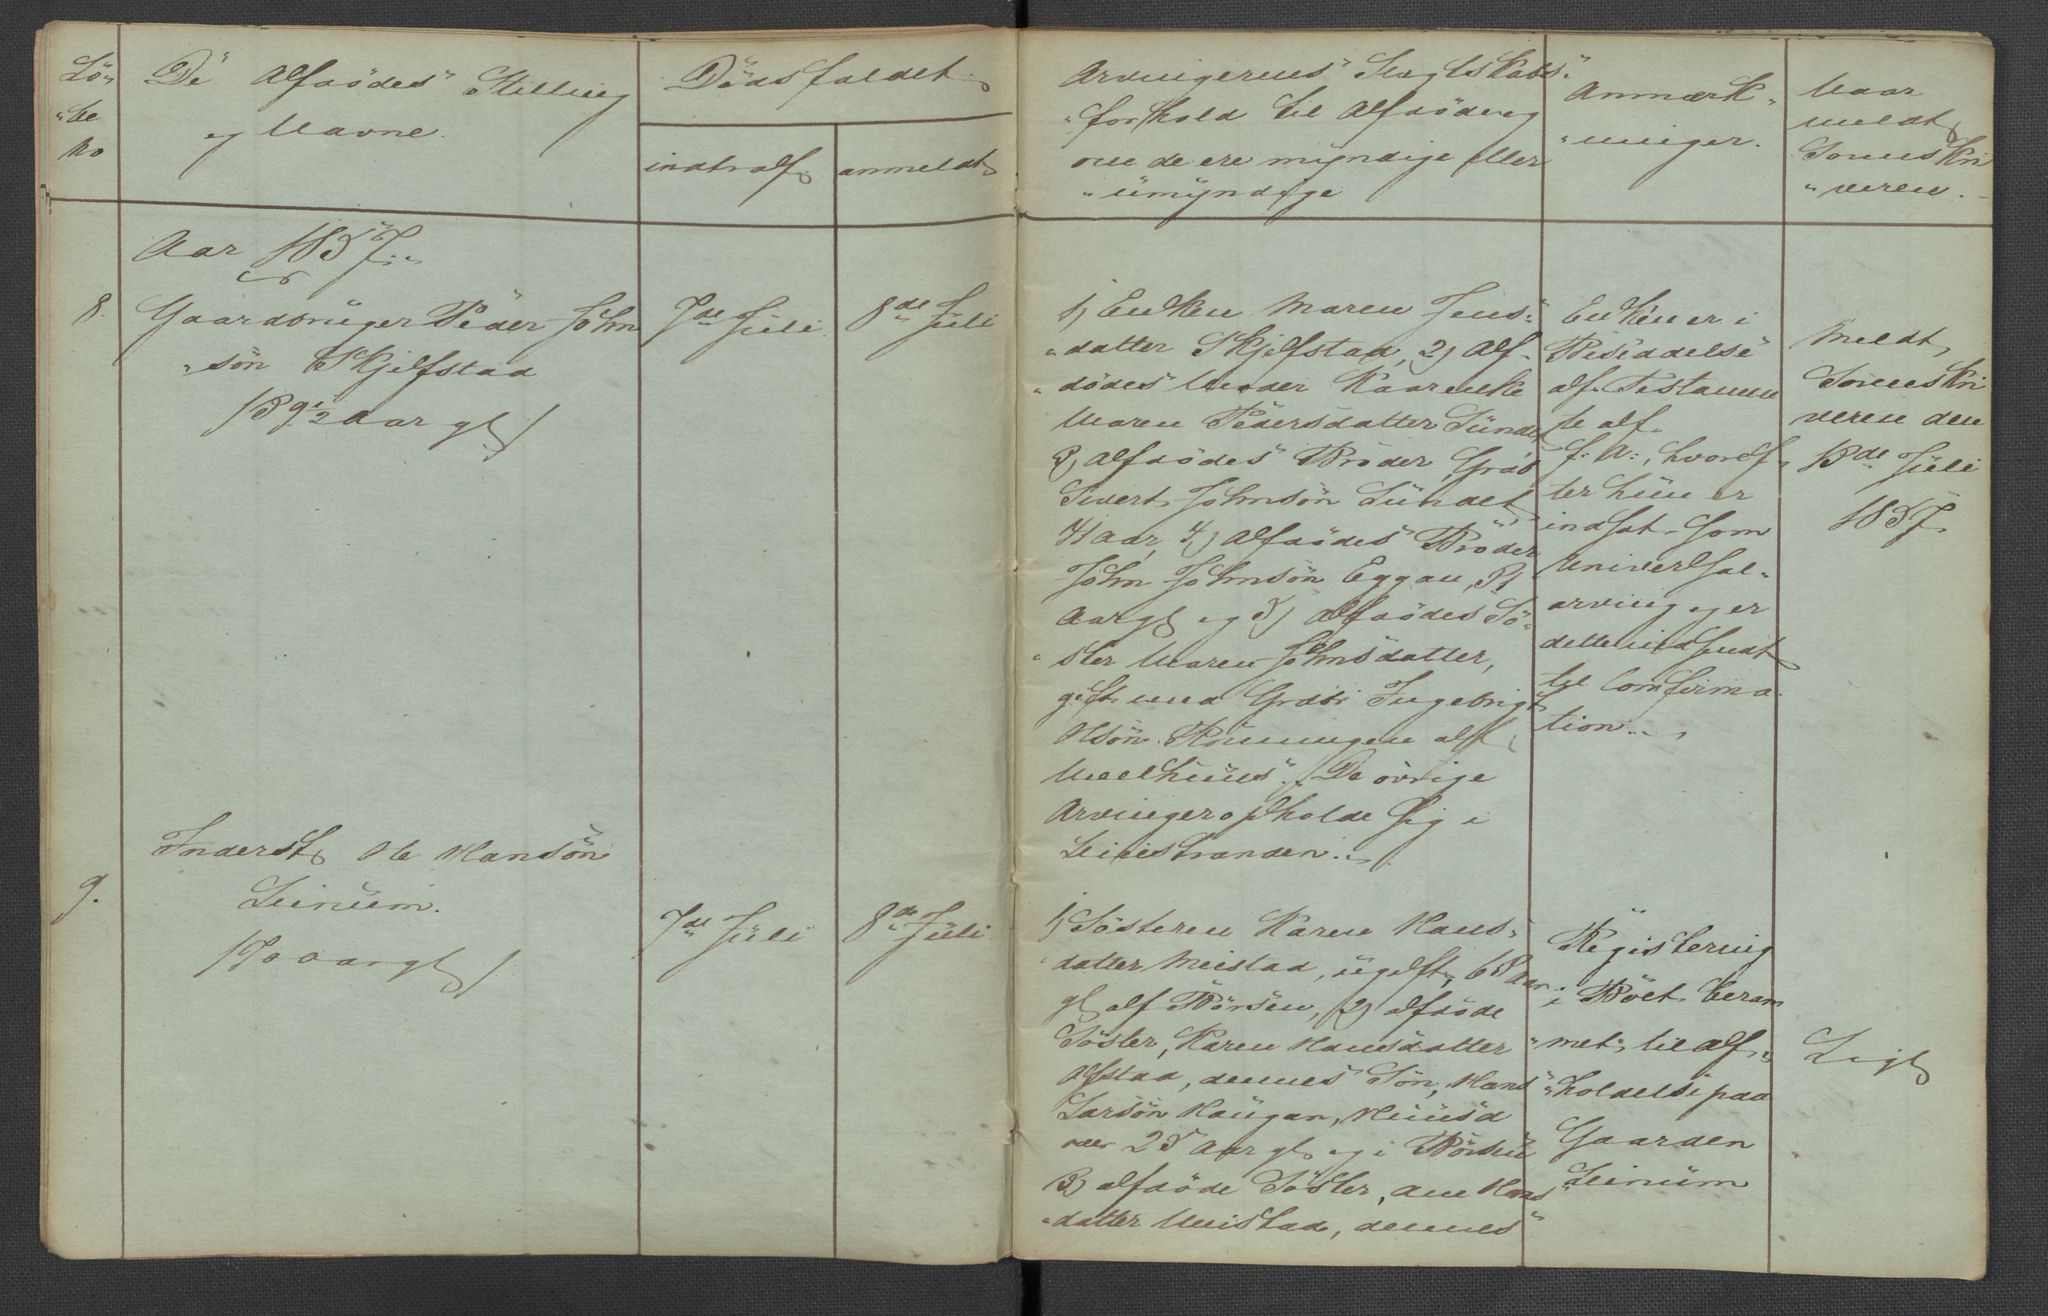 Lö-
"be
No
De Afdödes Stilling
og Navne.
Dödsfaldet
indtraf
anmeldt
Arvingernes Slægtskabs-
"forhold til Afdöde og
om de ere myndige eller
"umyndige
Anmærk-
"ninger.
Naar
meldt
Sorenskri
"veren.
Aar 1857.
8.
Gaardbruger Peder John
"sön Skjelfstad
/39 1/2 Aar gl/
7de Juli
8de Juli
1) Enken Maren Jens-
"datter Skjelfstad, 2) Af-
"dödes Moder Kaarenke
Maren Pedersdatter Sundet
3) Afdödes Broder, Grdb
Sivert Johnsön Sundet,
41 Aar, 4) Afdödes Broder
John Johnsön Eggan, 31
Aar gl og 5) Afdödes Sö-
"ster Maren Johnsdatter,
gift med Grdbr Ingebrigt
Olsön Rönningen af
Meelhuus. De övrige
Arvinger opholde sig i
Leinstranden.
Enken er i
Besiddelse
af Testamen
te af
f: A:, hvoref
ter hun er
indsat som
Universal-
arving og er
dette indsendt
til Comfirma
tion.
Meldt
Sorenskri
veren den
13de Juli
1857
9.
Inderst Ole Hansön
Leinum.
/70 Aar gl/
7de Juli
8de Juli
1) Sösteren Karen Hans-
datter Meistad, ugift, 68 Aar
gl af Börsen, 2) afdöde
Söster, Karen Hansdatter
Ofstad, dennes Sön, Hans
Larsön Haugan, Huusd
25 Aar gl og i Börsen
3) afdöde Söster, Ane Hans
"datter Meistad, dennes
Registering
i Boet beram
"met til Af-
"holdelse paa
Gaarden
Leinum
Ligl